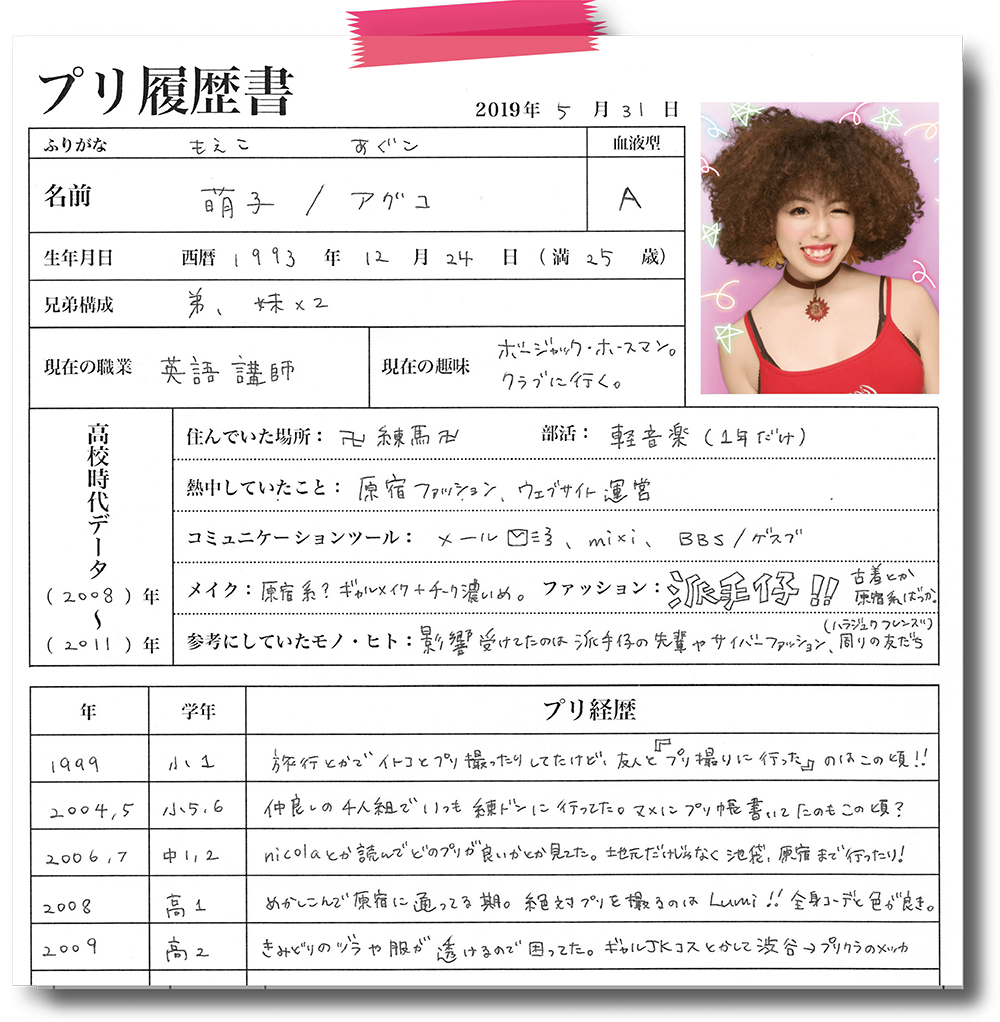 プリ履歴書
2019年 5 月 31 日
ふりがな もえこ あぐこ 血液型
名前 萌子 / アグコ A
生年月日 西暦 1993 年 12 月 24 日 (満 25 歳)
兄弟構成 弟、妹×2
現在の職業 英語講師 現在の趣味 ボージャック・ホースマン。
クラブに行く。
高校時代データ
(2008)年
〜
(2011)年
住んでいた場所: 卍練馬卍 部活: 軽音楽(1年だけ)
熱中していたこと: 原宿ファッション、ウェブサイト運営
コミュニケーションツール: メール、mixi、BBS/ゲスブ
メイク: 原宿系?ギャルメイク+チーク濃いめ。 ファッション: 派手仔!! 古着とか
原宿系ばっか。
参考にしていたモノ・ヒト: 影響受けてたのは派手仔の先輩やサイバーファッション、周りの友だち
(ハラジュクフレンズ)
年 学年 プリ経歴
1999 小1 旅行とかでイトコとプリ撮ったりしてたけど、友人と『プリ撮りに行った』のはこの頃!!
2004,5 小5,6 仲良しの4人組でいつも練ドンに行ってた。マメにプリ帳書いてたのもこの頃?
2006,7 中1,2 nicolaとか読んでどのプリが良いかとか見てた。地元だけじゃなく池袋、原宿まで行ったり!
2008 高1 めかしこんで原宿に通ってる期。絶対プリを撮るのはLumi!!全身コーデと色が良き。
2009 高2 きみどりのヅラや服が透けるので困ってた。ギャルJKコスとかして渋谷→プリクラのメッカ